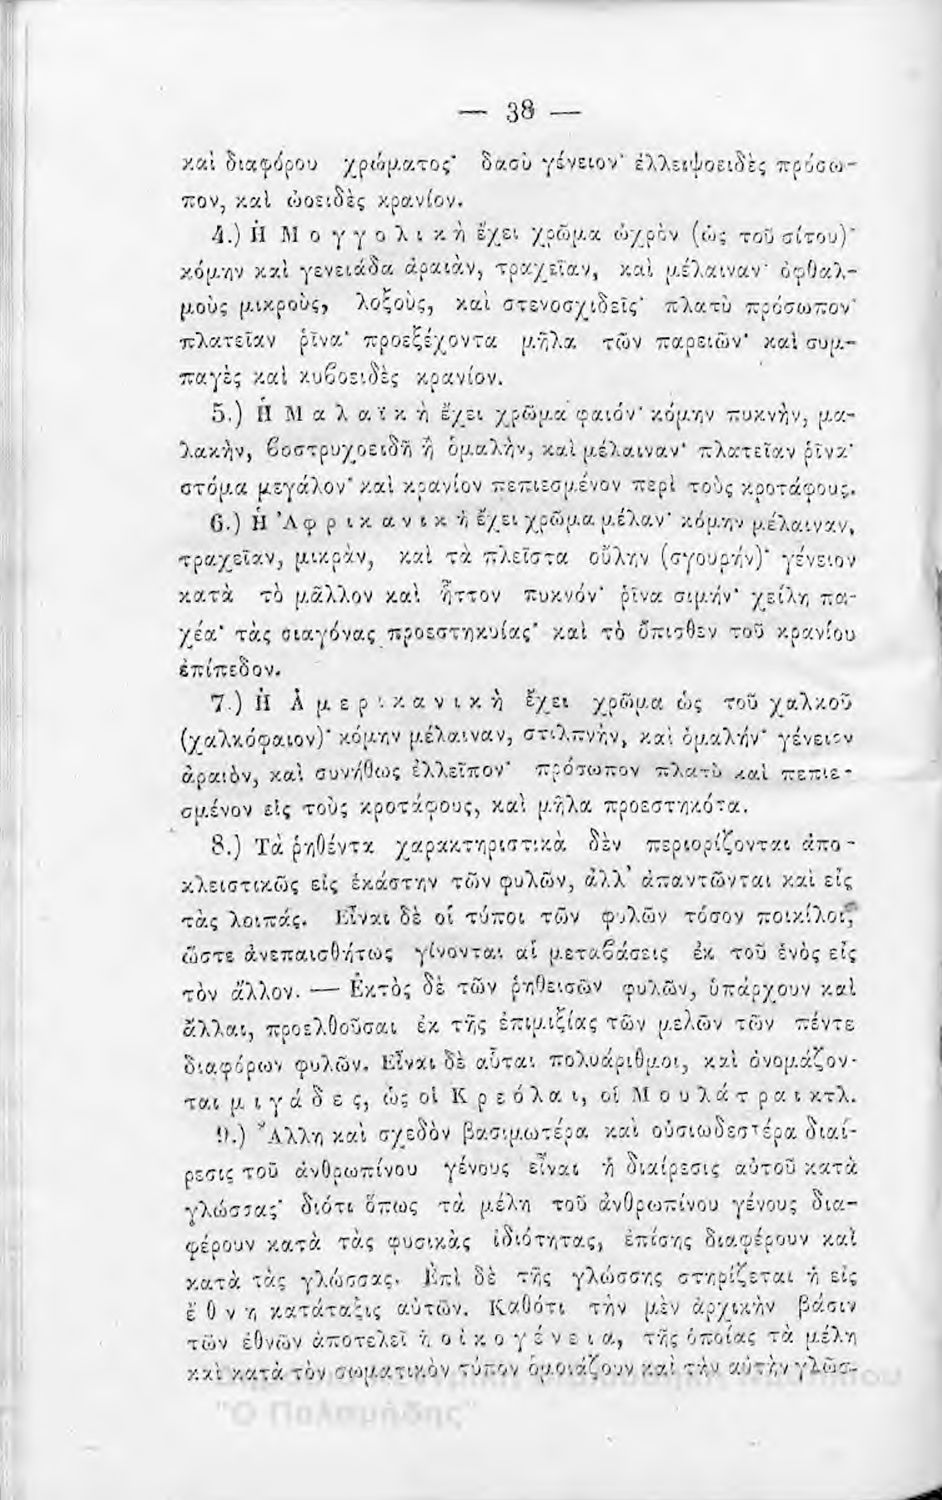 — 38 —
καὶ διαφόρου χρώματος· δασὺ γένειον· ἐλλειψοειδὲς πρόσω-
πον, καὶ ὠοειδὲς κρανίον.
4.) Ἡ Μογγολικὴ ἔχει χρῶμα ὠχρὸν (ὡς τοῦ σίτου)·
κόμην καὶ γενειάδα ἀραιὰν, τραχεῖαν, καὶ μέλαιναν· ὀφθαλ-
μοὺς μικροὺς, λοξοὺς, καὶ στενοσχιδεῖς· πλατὺ πρόσωπον·
πλατεῖαν ῥῖνα· προεξέχοντα μῆλα τῶν παρειῶν· καὶ συμ-
παγὲς καὶ κυβοειδὲς κρανίον.
5.) Ἡ Μαλαϊκὴ ἔχει χρῶμα φαιόν· κόμην πυκνὴν, μα-
λακὴν, βοστρυχοειδῆ ἢ ὁμαλὴν, καὶ μέλαιναν· πλατεῖαν ῥῖνα·
στόμα μεγάλον· καὶ κρανίον πεπιεσμένον περὶ τοὺς κροτάφους.
6.) Ἡ Ἀφρικανικὴ ἔχει χρῶμα μέλαν· κόμην μέλαιναν,
τραχεῖαν, μικρὰν, καὶ τὰ πλεῖστα οὔλην (σγουρήν)· γένειον
κατὰ τὸ μᾶλλον καὶ ἧττον πυκνόν· ῥῖνα σιμήν· χείλη πα-
χέα· τὰς σιαγόνας προεστηκυίας· καὶ τὸ ὄπισθεν τοῦ κρανίου
ἐπίπεδον.
7.) Ἡ Ἀμερικανικὴ ἔχει χρῶμα ὡς τοῦ χαλκοῦ
(χαλκόφαιον)· κόμην μέλαιναν, στιλπνὴν, καὶ ὁμαλήν· γένειον
ἀραιὸν, καὶ συνήθως ἐλλεῖπον· πρόσωπον πλατὺ καὶ πεπιε-
σμένον εἰς τοὺς κροτάφους, καὶ μῆλα προεστηκότα.
8.) Τὰ ῥηθέντα χαρακτηριστικὰ δὲν περιορίζονται ἀπο-
κλειστικῶς εἰς ἑκάστην τῶν φυλῶν, ἀλλ' ἀπαντῶνται καὶ εἰς
τὰς λοιπάς. Εἶναι δὲ οἱ τύποι τῶν φυλῶν τόσον ποικίλοι,
ὥστε ἀνεπαισθήτως γίνονται αἱ μεταβάσεις ἐκ τοῦ ἑνὸς εἰς
τὸν ἄλλον. — Ἐκτὸς δὲ τῶν ῥηθεισῶν φυλῶν, ὑπάρχουν καὶ
ἄλλαι, προελθοῦσαι ἐκ τῆς ἐπιμιξίας τῶν μελῶν τῶν πέντε
διαφόρων φυλῶν. Εἶναι δὲ αὗται πολυάριθμοι, καὶ ὀνομάζον-
ται μιγάδες, ὡς οἱ Κρεόλαι, οἱ Μουλάτραι κτλ.
9.) Ἄλλη καὶ σχεδὸν βασιμωτέρα καὶ οὐσιωδεστέρα διαί-
ρεσις τοῦ ἀνθρωπίνου γένους εἶναι ἡ διαίρεσις αὐτοῦ κατὰ
γλώσσας· διότι ὅπως τὰ μέλη τοῦ ἀνθρωπίνου γένους δια-
φέρουν κατὰ τὰς φυσικὰς ἰδιότητας, ἐπίσης διαφέρουν καὶ
κατὰ τὰς γλώσσας. Ἐπὶ δὲ τῆς γλώσσης στηρίζεται ἡ εἰς
ἔθνη κατάταξις αὐτῶν. Καθότι τὴν μὲν ἀρχικὴν βάσιν
τῶν ἐθνῶν ἀποτελεῖ ἡ οἰκογένεια, τῆς ὁποίας τὰ μέλη
καὶ κατὰ τὸν σωματικὸν τύπον ὁμοιάζουν καὶ τὴν αὐτὴν γλῶσ-
"Ο Παλαμήδης"